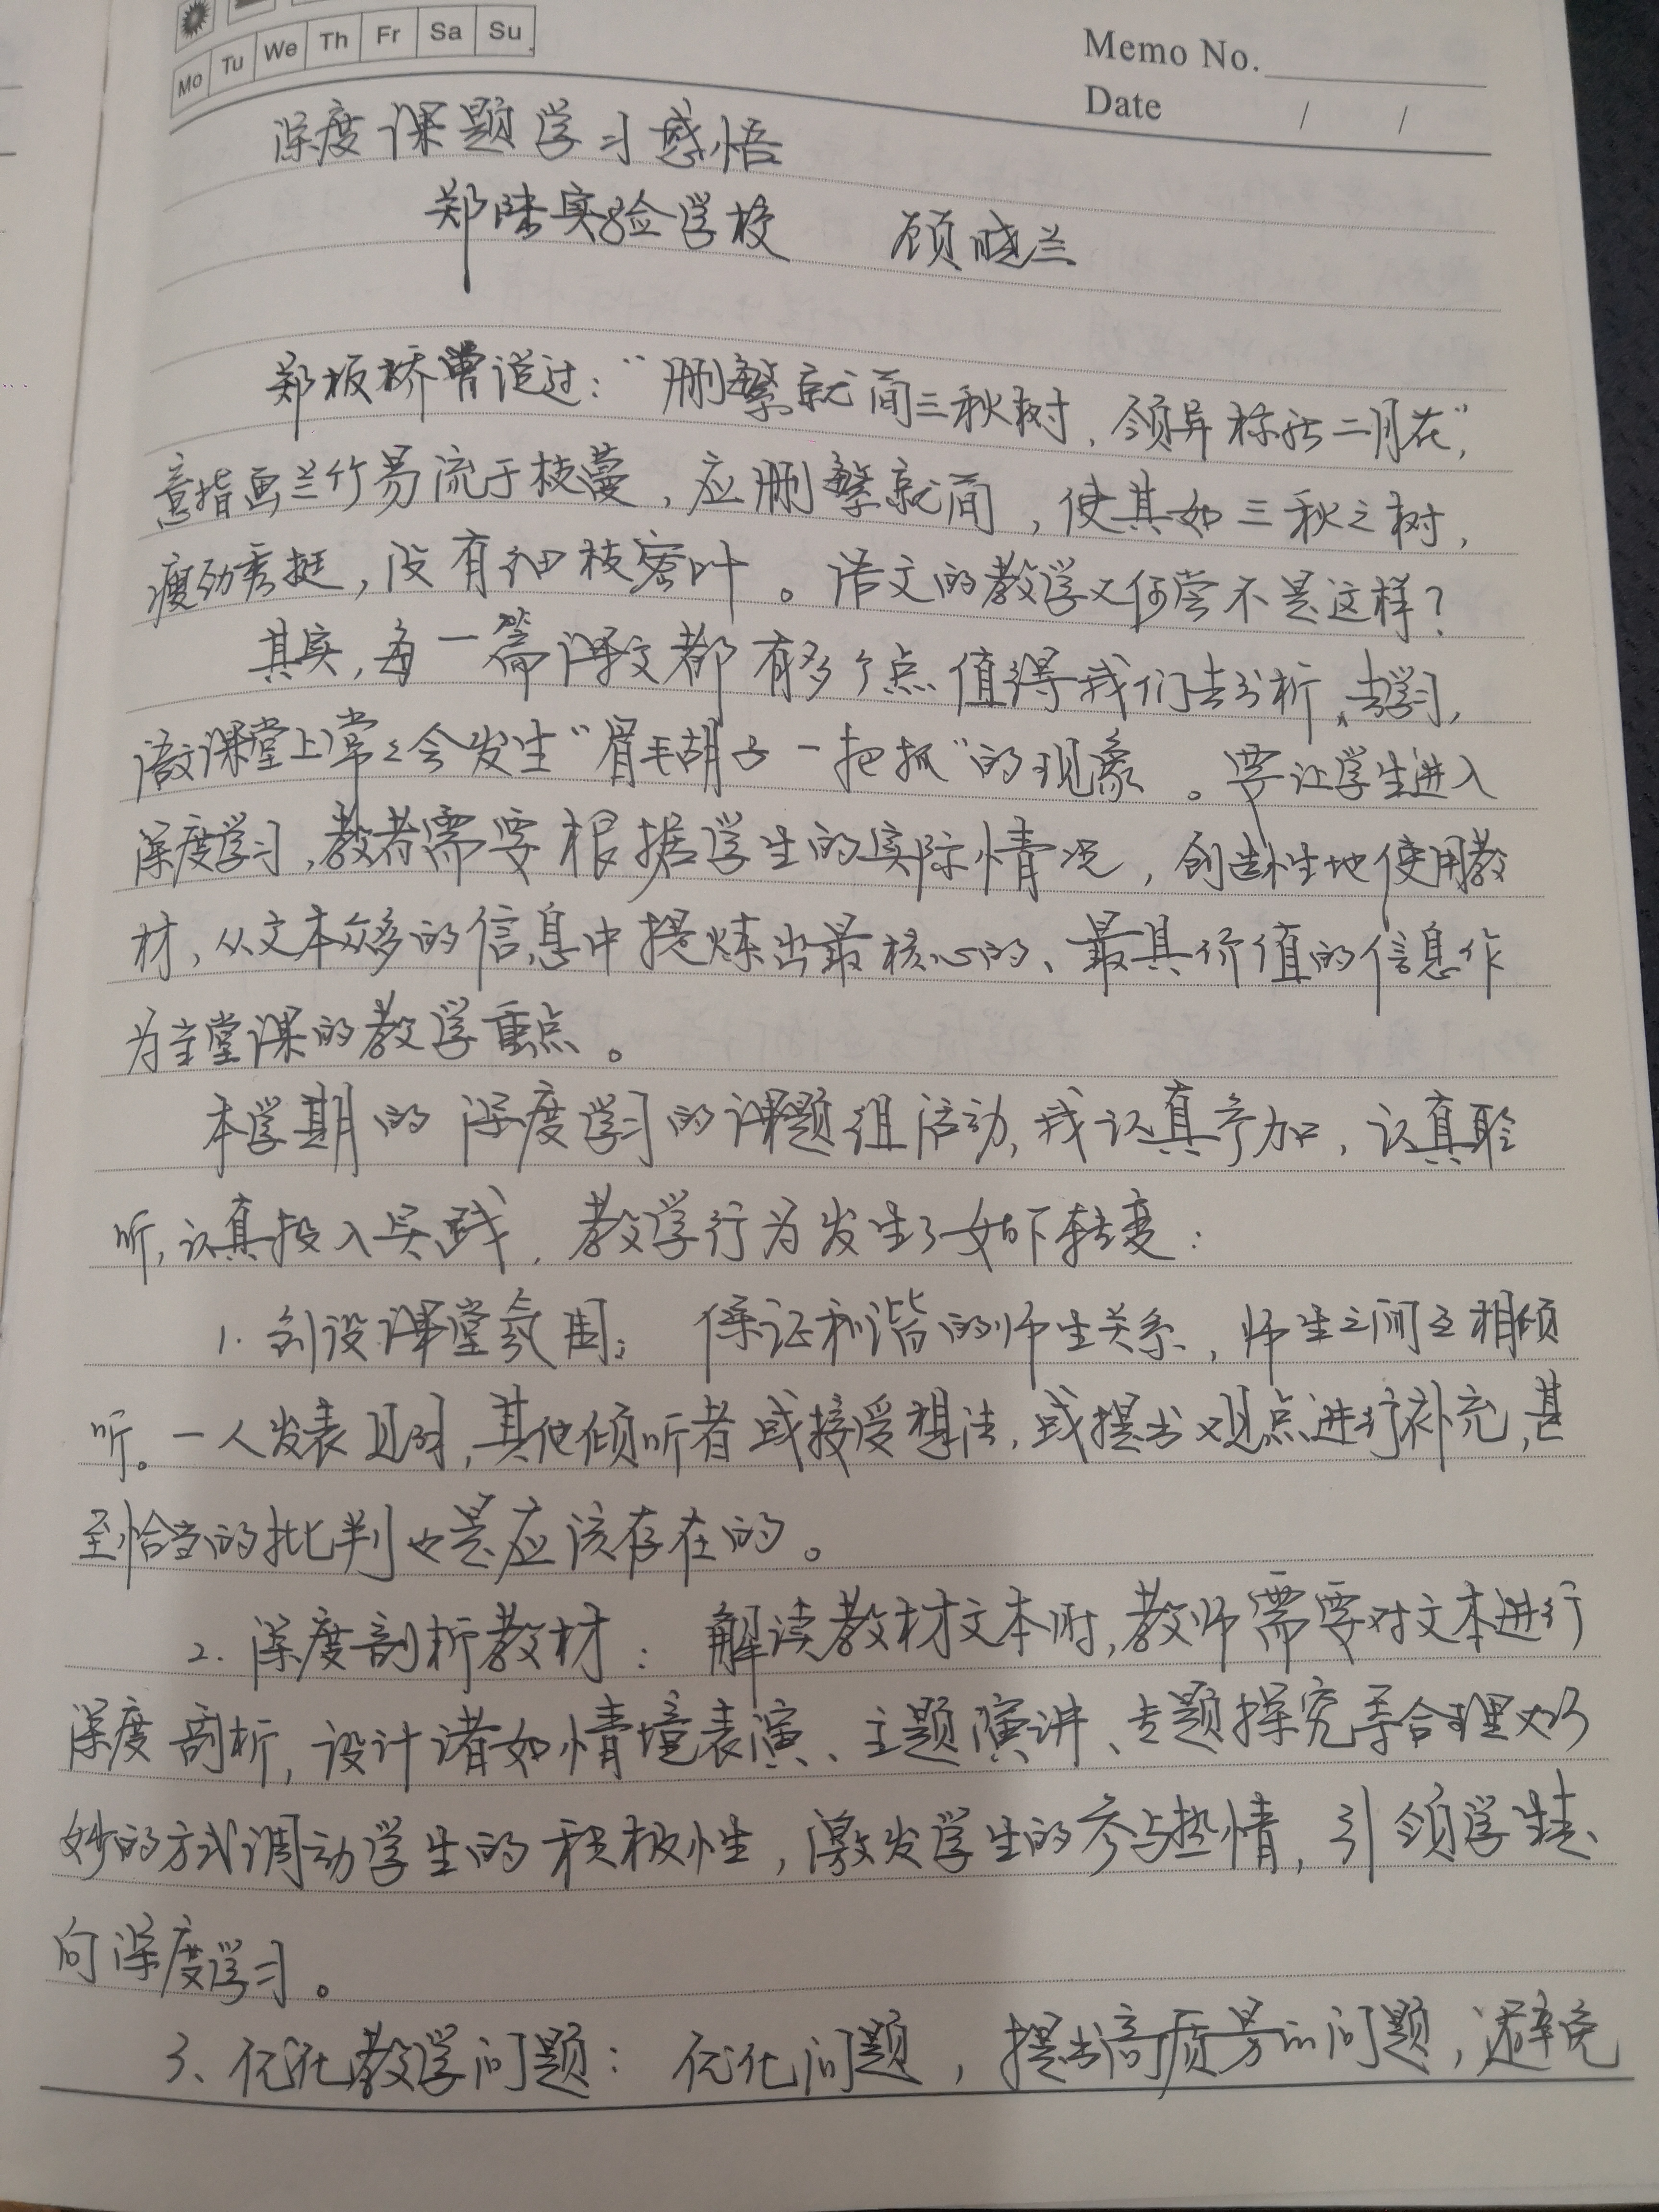 Mo Tu We Th Fr Sa Su
Memo No.
Date / /
深度课题学习感悟
郑陆实验学校 顾晓兰
郑板桥曾说过：“删繁就简三秋树，领异标新二月花”，
意指画兰竹易流于枝蔓，应删繁就简，使其如三秋之树，
瘦劲秀挺，没有细枝密叶。语文的教学又何尝不是这样？
其实，每一篇课文都有多个点值得我们去分析、去学习，
语文课堂上常々会发生“眉毛胡子一把抓”的现象。要让学生进入
深度学习，教者需要根据学生的实际情况，创造性地使用教
材，从文本众多的信息中提炼出最核心的、最具价值的信息作
为主堂课的教学重点。
本学期的深度学习的课题组活动，我认真参加，认真聆
听，认真投入实践，教学行为发生了如下转变：
1. 创设课堂氛围： 保证和谐的师生关系，师生之间互相倾
听。一人发表见时，其他倾听者或接受想法，或提出观点进行补充，甚
至恰当的批判也是应该存在的。
2. 深度剖析教材： 解读教材文本时，教师需要对文本进行
深度剖析，设计诸如情境表演、主题演讲、专题探究等合理巧
妙的方式调动学生的积极性，激发学生的参与热情，引领学生走
向深度学习。
3、优化教学问题： 优化问题，提出高质量的问题，避免